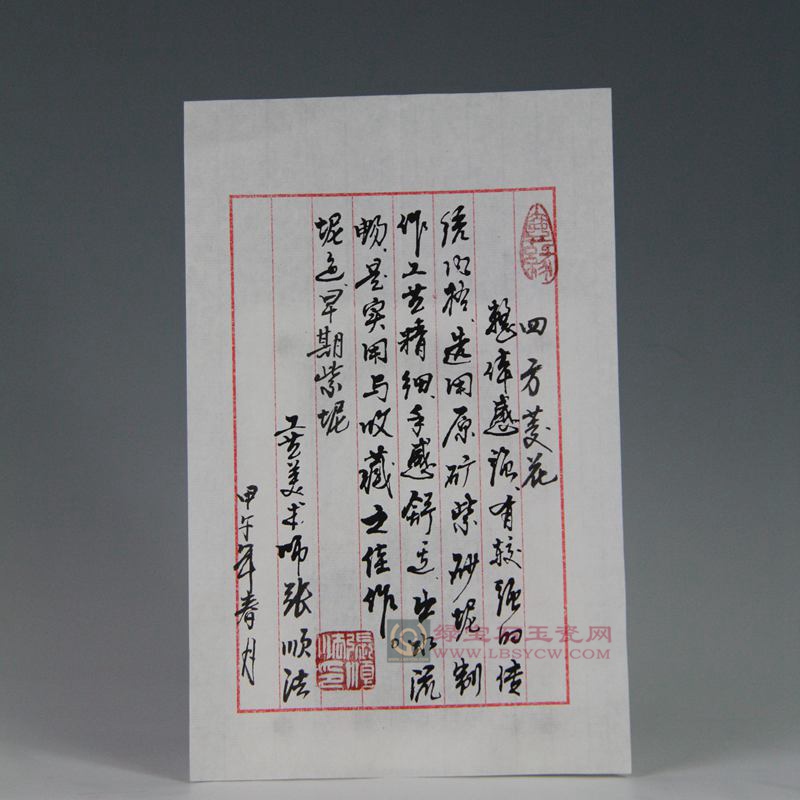 四方菱花
整体感强、有较强的传
统风格、选用原矿紫砂坭制
作工艺精细、手感舒适、出水流
畅、是实用与收藏之佳作。
坭色、早期紫坭
工艺美术师张顺法
甲午年春月
张顺法印
绿宝石玉瓷网
WWW.LBSYCW.COM